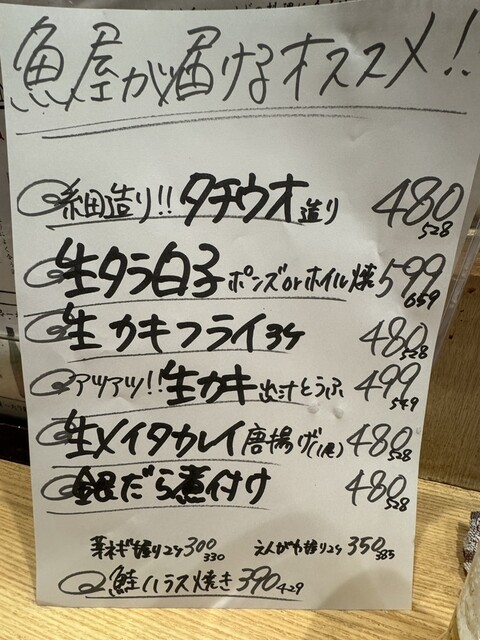 魚屋が届けるオススメ!!
細造り!!タチウオ造り 480 528
生タラ白子ポンズorホイル焼 599 659
生カキフライ3ケ 480 528
アツアツ!!生カキ出汁とうふ 499 549
生メイタカレイ唐揚げ(尾) 480 528
銀だら煮付け 480 528
芽ネギ握り2ケ300 330 えんがわ握り2ケ 350 385
鮭ハラス焼き 390 429